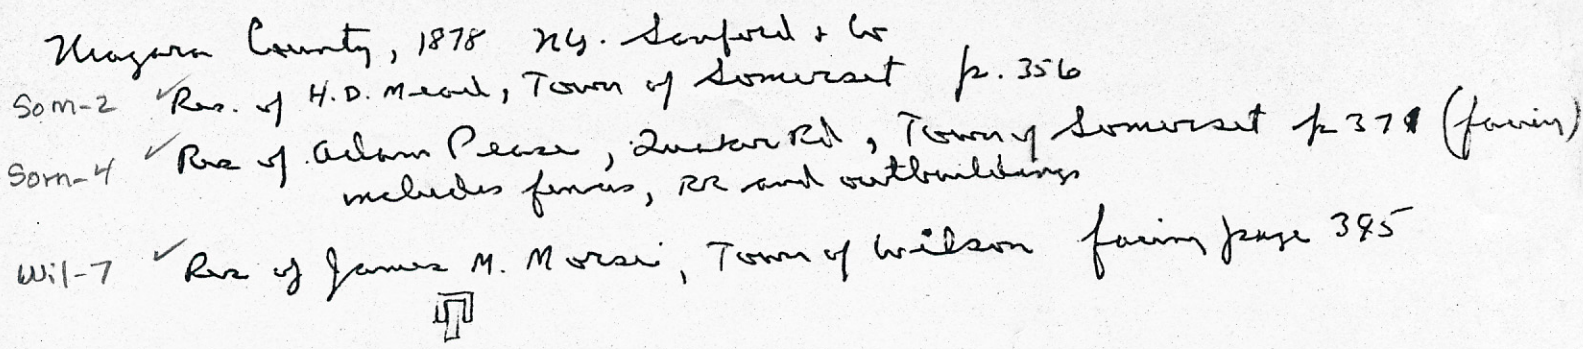 Niagara County, 1878 NY. Sanford & Co
Som-2 ✓ Res. of H.D. Mead, Town of Somerset p. 356
Som-4 ✓ Res of Adam Pease, Quaker Rd, Town of Somerset p 371 (facing)
includes fences, RR and outbuildings
Wil-7 ✓ Res of James M. Morse, Town of Wilson facing page 395